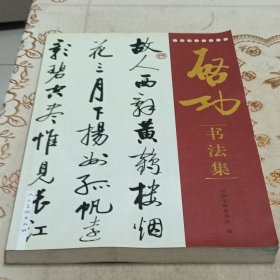 啓功
书法集
故人西辞黄鹤楼烟
花三月下揚州孤帆遠
影碧空尽惟見長江